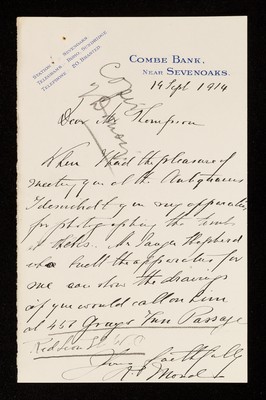 STATION } SEVENOAKS
TELEGRAMS
TELEPHONE 20, BRASTED
COMBE BANK,
NEAR SEVENOAKS.
19 Sept 1914
Dear Mr Thompson
When I had the pleasure of
meeting you at the Antiquaries
I described to you my apparatus
for photographing the tombs
at Thebes. Mr Sanger Shepherd
who built the apparatus for
me can show the drawings
if you would call on him
at 457 Grays Inn Passage
Red Lion St W.C.
Yours faithfully
R Mond